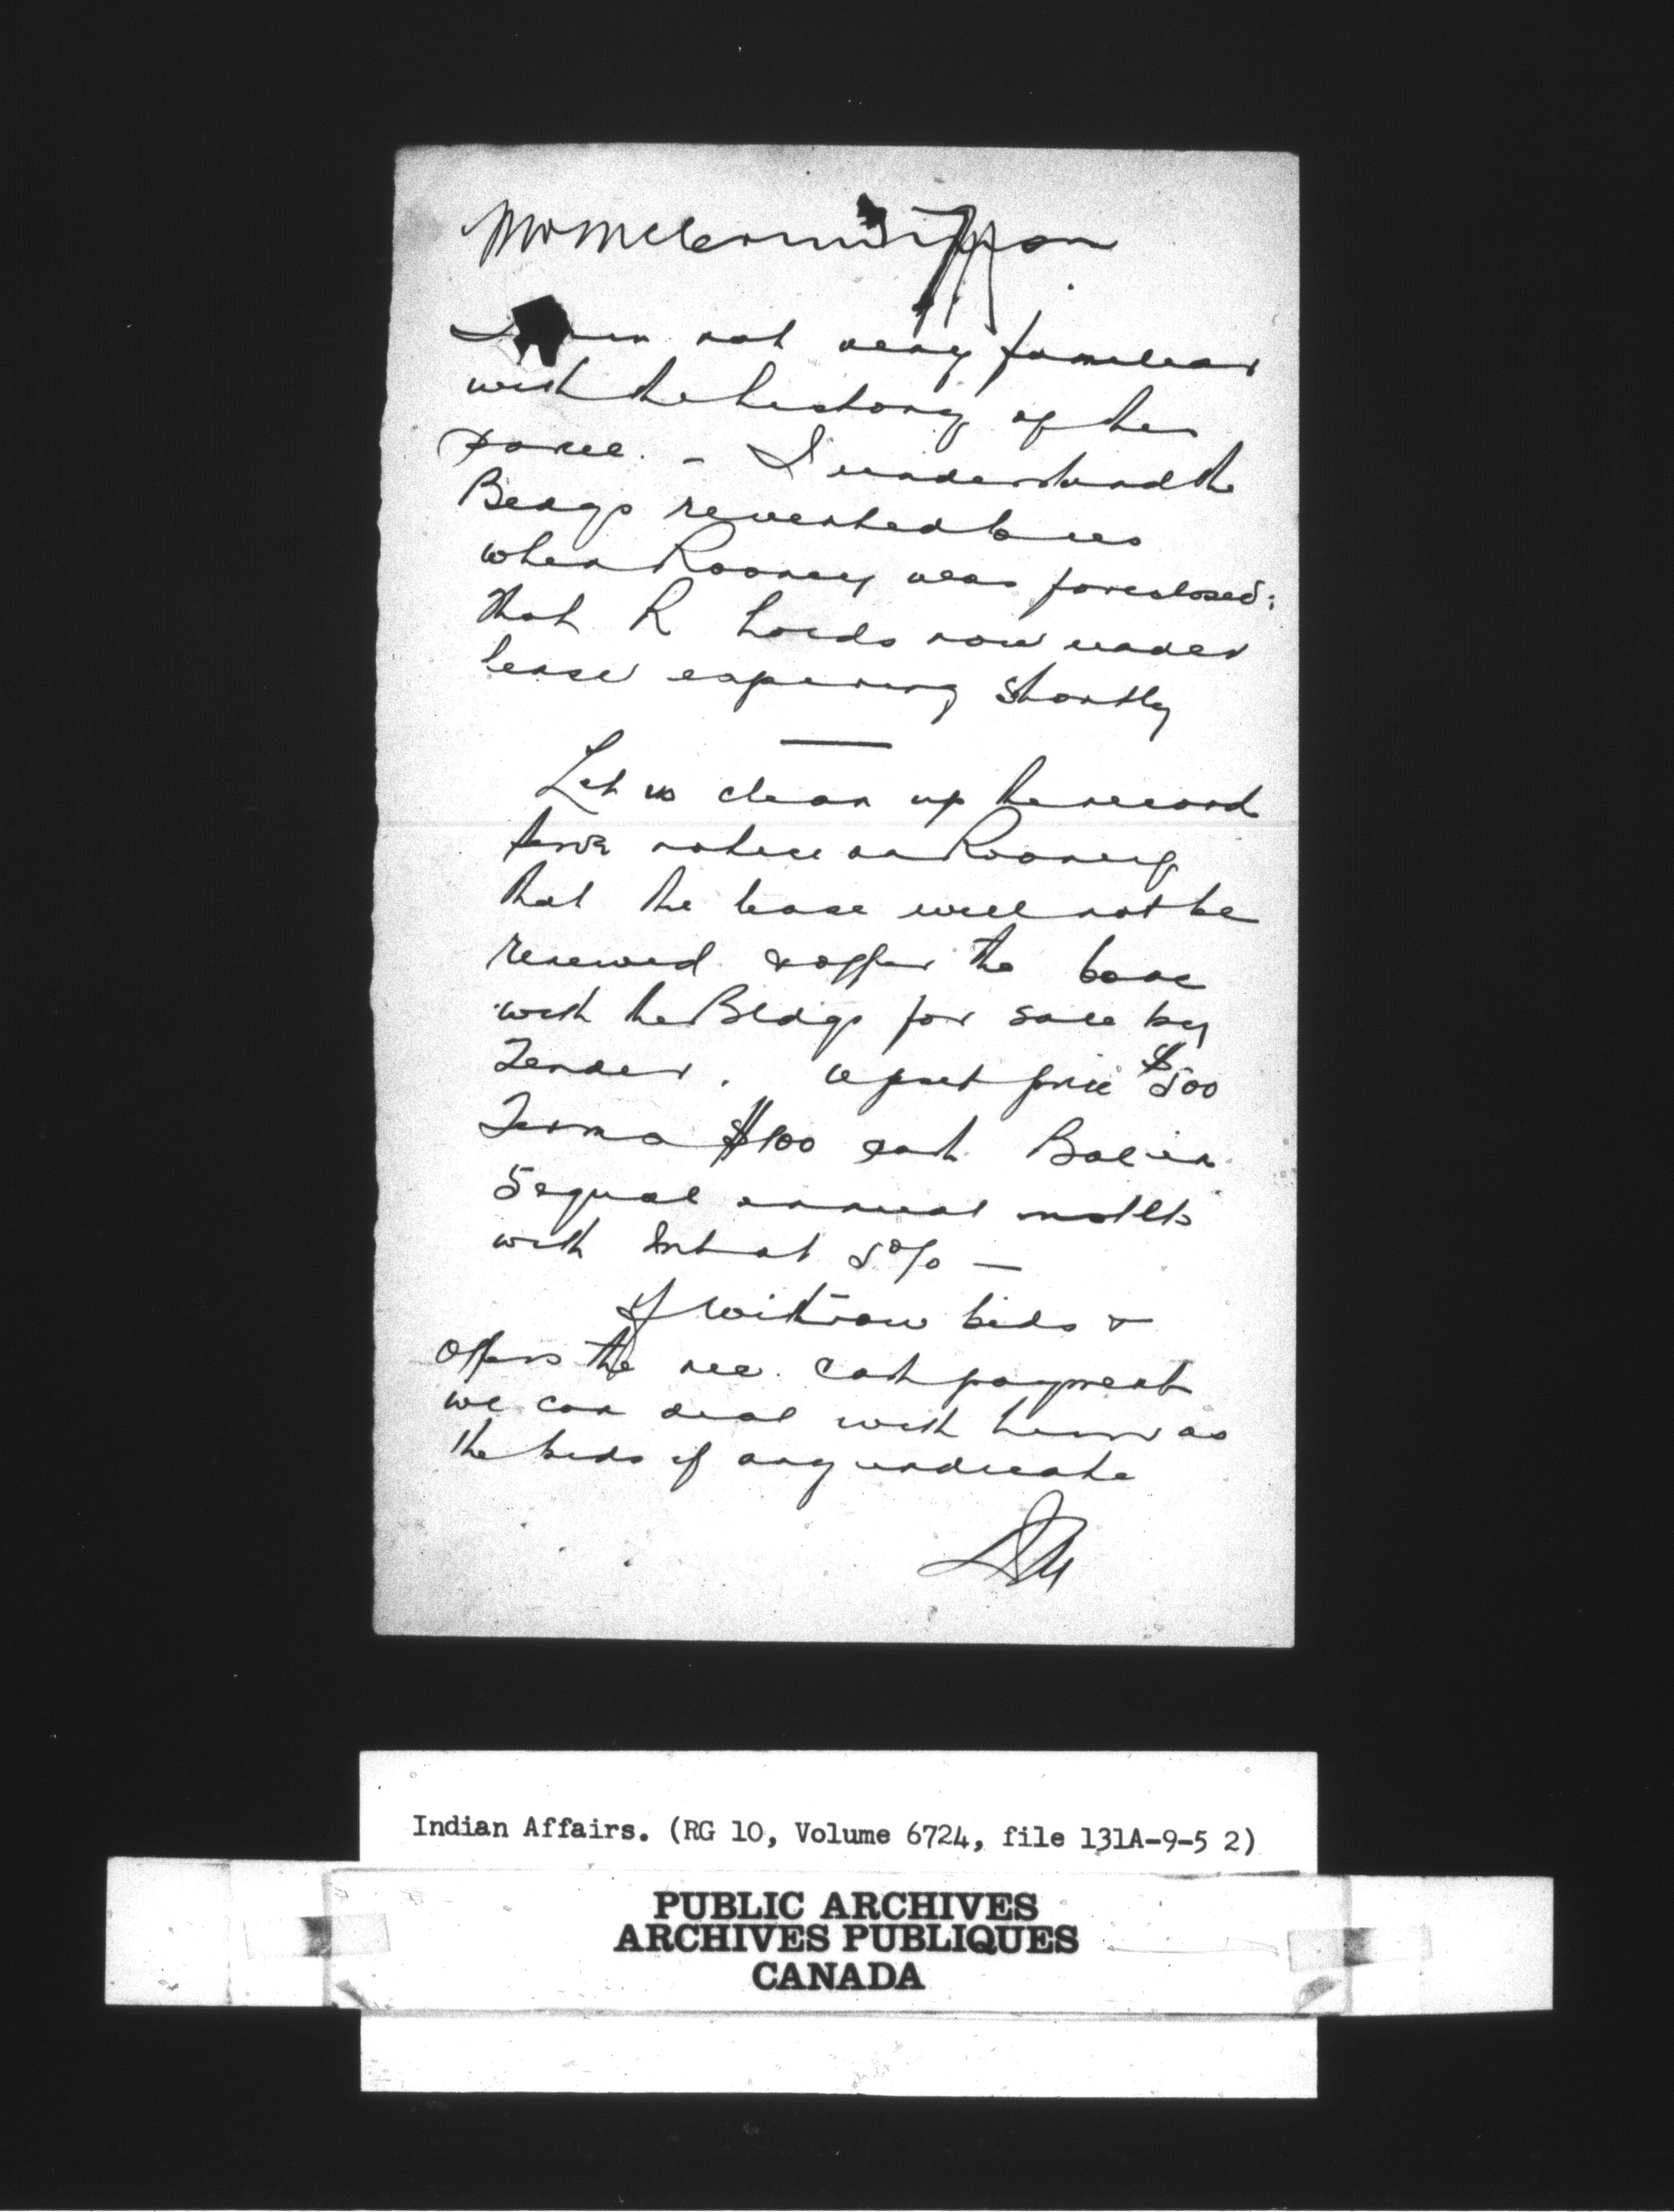 I am not very familiar
with the history of the
parcel. - I understand the
Bldgs reverted to us
when Rooney was foreclosed;
that R holds now under
lease expiring shortly
Let us clean up the record
serve notice on Rooney
that the lease will not be
renewed & offer the
with the Bldgs for sale by
Tender. Upset price $500
Terms $100 cash Bal in
5 equal annual instlts
with Int at 5% —
If bids &
offers the nec. cash payment
we can deal with him as
the bids if any indicate
Indian Affairs. (RG 10, Volume 6724, file 131A-9-5 2)
PUBLIC ARCHIVES
ARCHIVES PUBLIQUES
CANADA